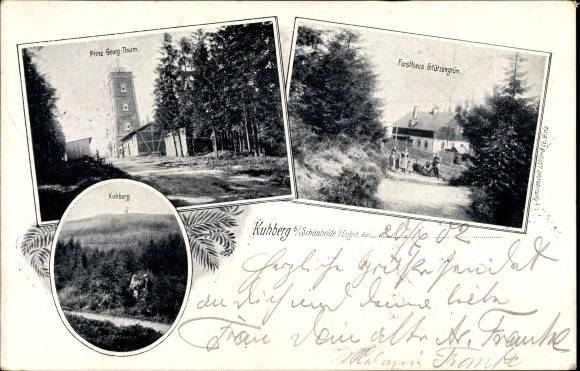 Prinz Georg-Thurm.
Forsthaus Stützengrün.
Kuhberg.
Kuhberg b/Schönheide i/Erzgeb., den 02
Herzliche Grüße sendet
an Dich und deine liebe
Frau Dein alter Franke
Franke